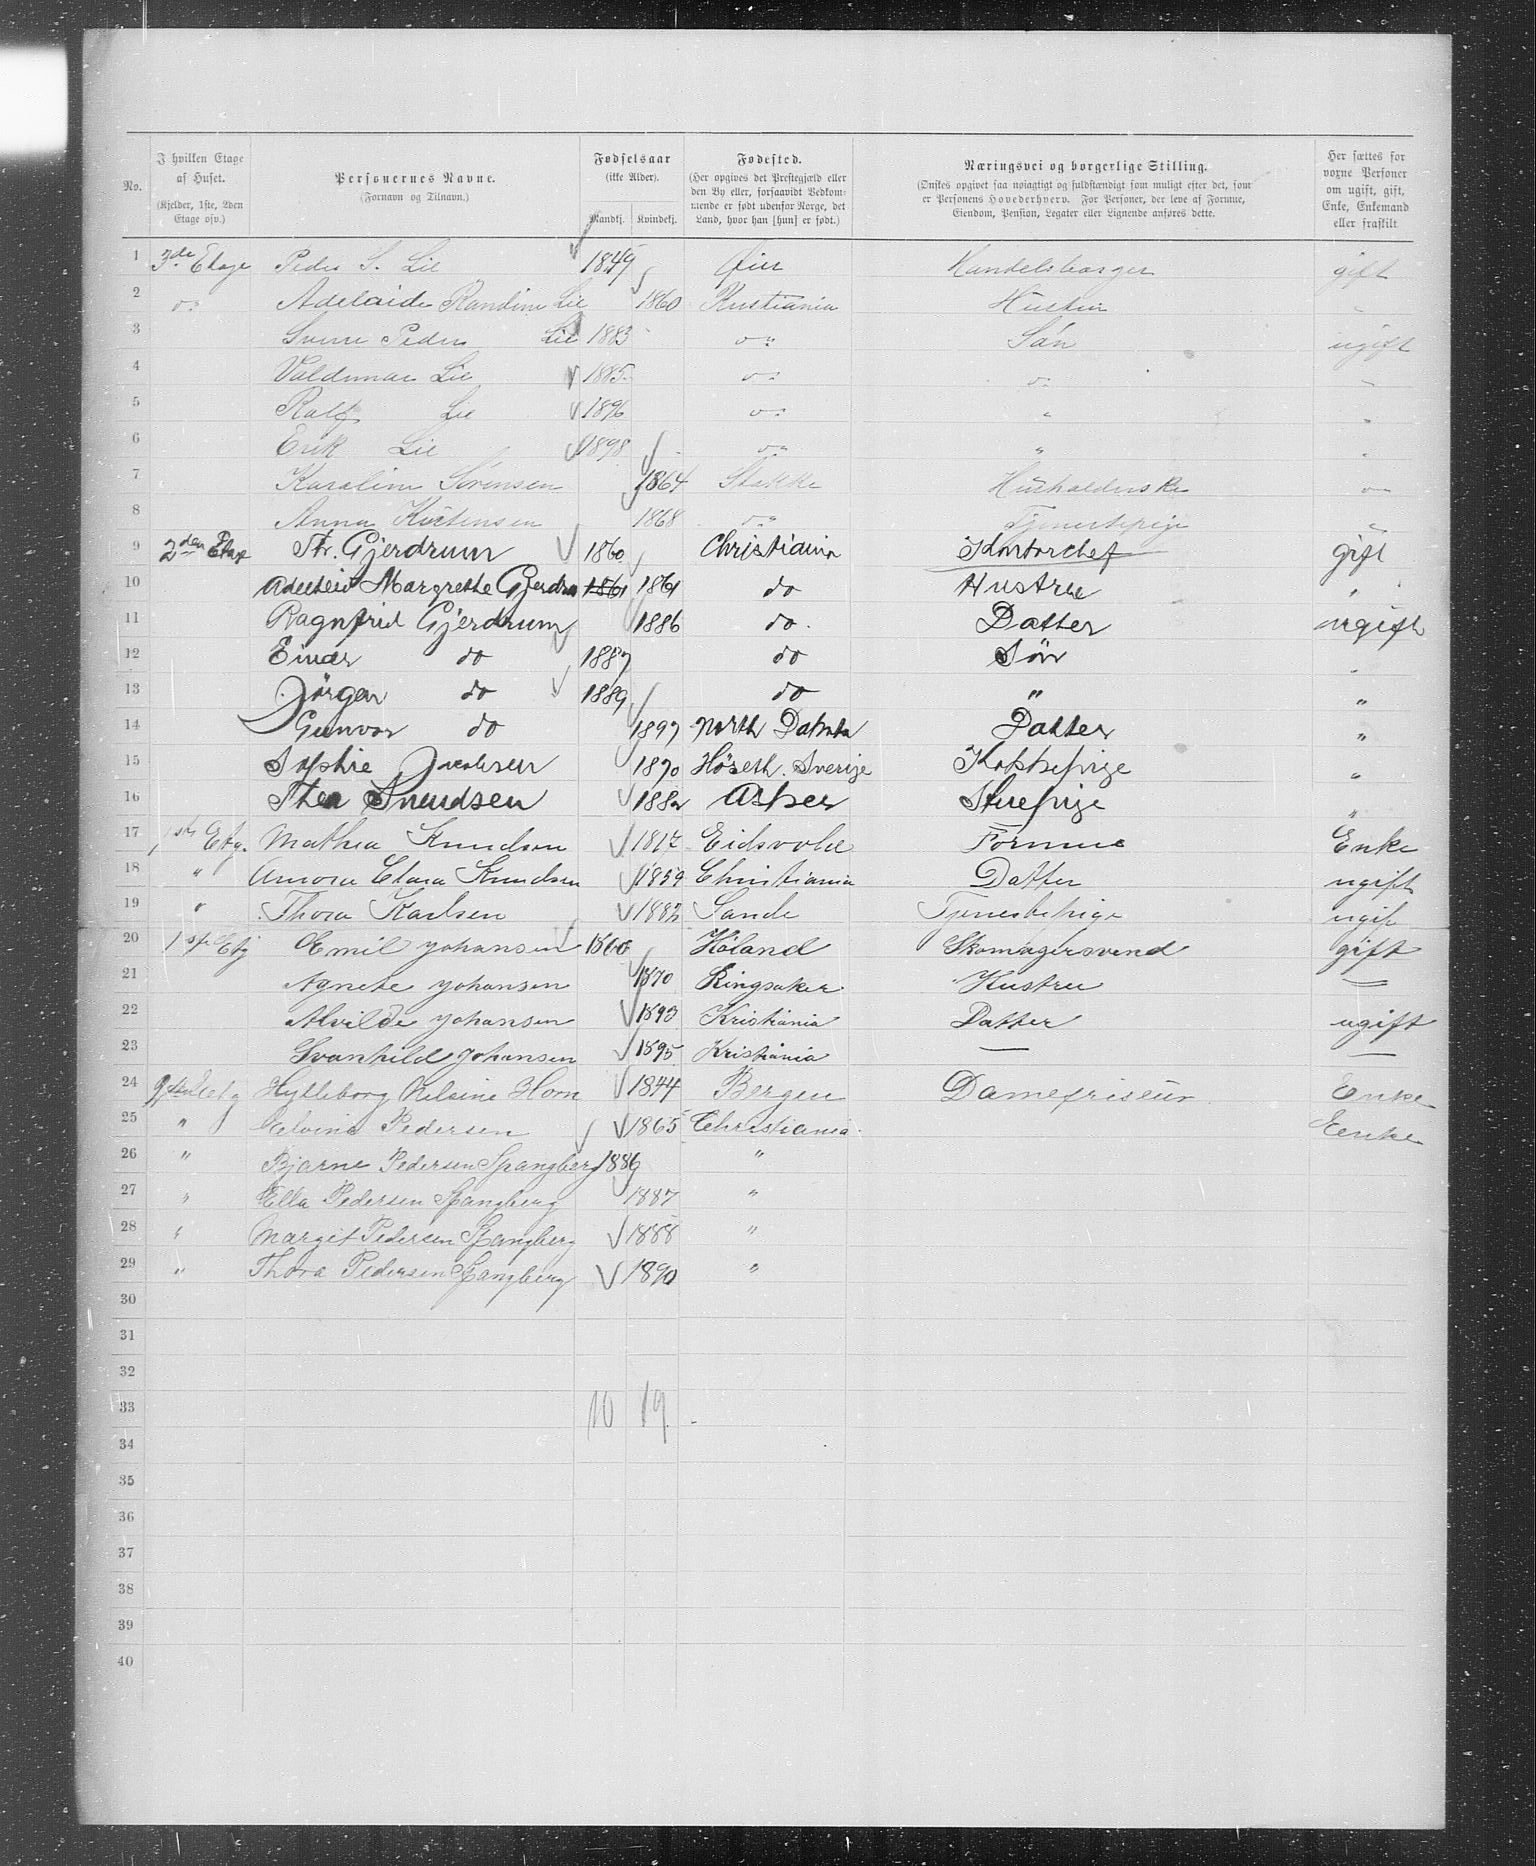 No. | I hvilken Etage af Huset. (Kjelder, 1ste, 2den Etage osv.) | Personernes Navne. (Fornavn og Tilnavn.) | Fødselsaar (ikke Alder). Mandkj. Kvindekj. | Fødested. (Her opgives det Prestegjæld eller den By eller, forsaavidt Vedkommende er født udenfor Norge, det Land, hvor han [hun] er født.) | Næringsvei og borgerlige Stilling. (Ønskes opgivet saa nøiagtigt og fuldstændigt som muligt efter det, som er Personens Hovederhverv. For Personer, der leve af Formue, Eiendom, Pension, Legater eller Lignende anføres dette. | Her sættes for voxne Personer om ugift, gift, Enke, Enkemand eller fraskilt
1 3de Etage Peder S. Lie 1849 Handelsborger gift
2 do Adelaide Randine Lie 1860 Kristiania Hustru "
3 Sverre Peder Lie 1883 do Søn ugift
4 Valdemar Lie 1885 do do "
5 Ralf Lie 1896 do " "
6 Erik Lie 1898 do " "
7 Karoline Sørensen 1864 Stokke Husholderske "
8 Anna Kristensen 1868 do Tjenestepige "
9 2den Etage Thr. Gjerdrum 1860 Christiania Kontorchef gift
10 Adelheid Margrethe Gjerdrum 1861 1861 do Hustrue "
11 Ragnfrid Gjerdrum 1886 do. Datter ugift
12 Einar do 1887 do Søn "
13 Jörgen do 1889 do " "
14 Gunvor do 1897 North Dakota Datter "
15 Sophie Jacobsen 1870 Sverige Kokkepige "
16 Thea Knudsen 1882 Asker Stuepige "
17 1ste Etg. Mathea Knudsen 1817 Eidsvold Formue Enke
18 " Clara Knudsen 1859 Christiania Datter ugift
19 " Thora Karlsen 1882 Sande Tjenestepige ugift
20 1ste Etg Emil Johansen 1860 Höland Skomagersvend gift
21 Agnete Johansen 1870 Ringsaker Hustru —
22 Alvilde Johansen 1893 Kristiania Datter ugift
23 Svanhild Johansen 1895 Kristiania — —
24 Hylleborg Nilsine Horn 1844 Bergen Damefriseur Enke
25 " Elvine Pedersen 1865 Christiania Enke
26 " Bjarne Pedersen Spangberg 1886 "
27 " Ella Pedersen Spangberg 1887 "
28 " Margit Pedersen Spangberg 1888 "
29 " Thora Pedersen Spangberg 1890 "
30
31
32
33 10 19
34
35
36
37
38
39
40